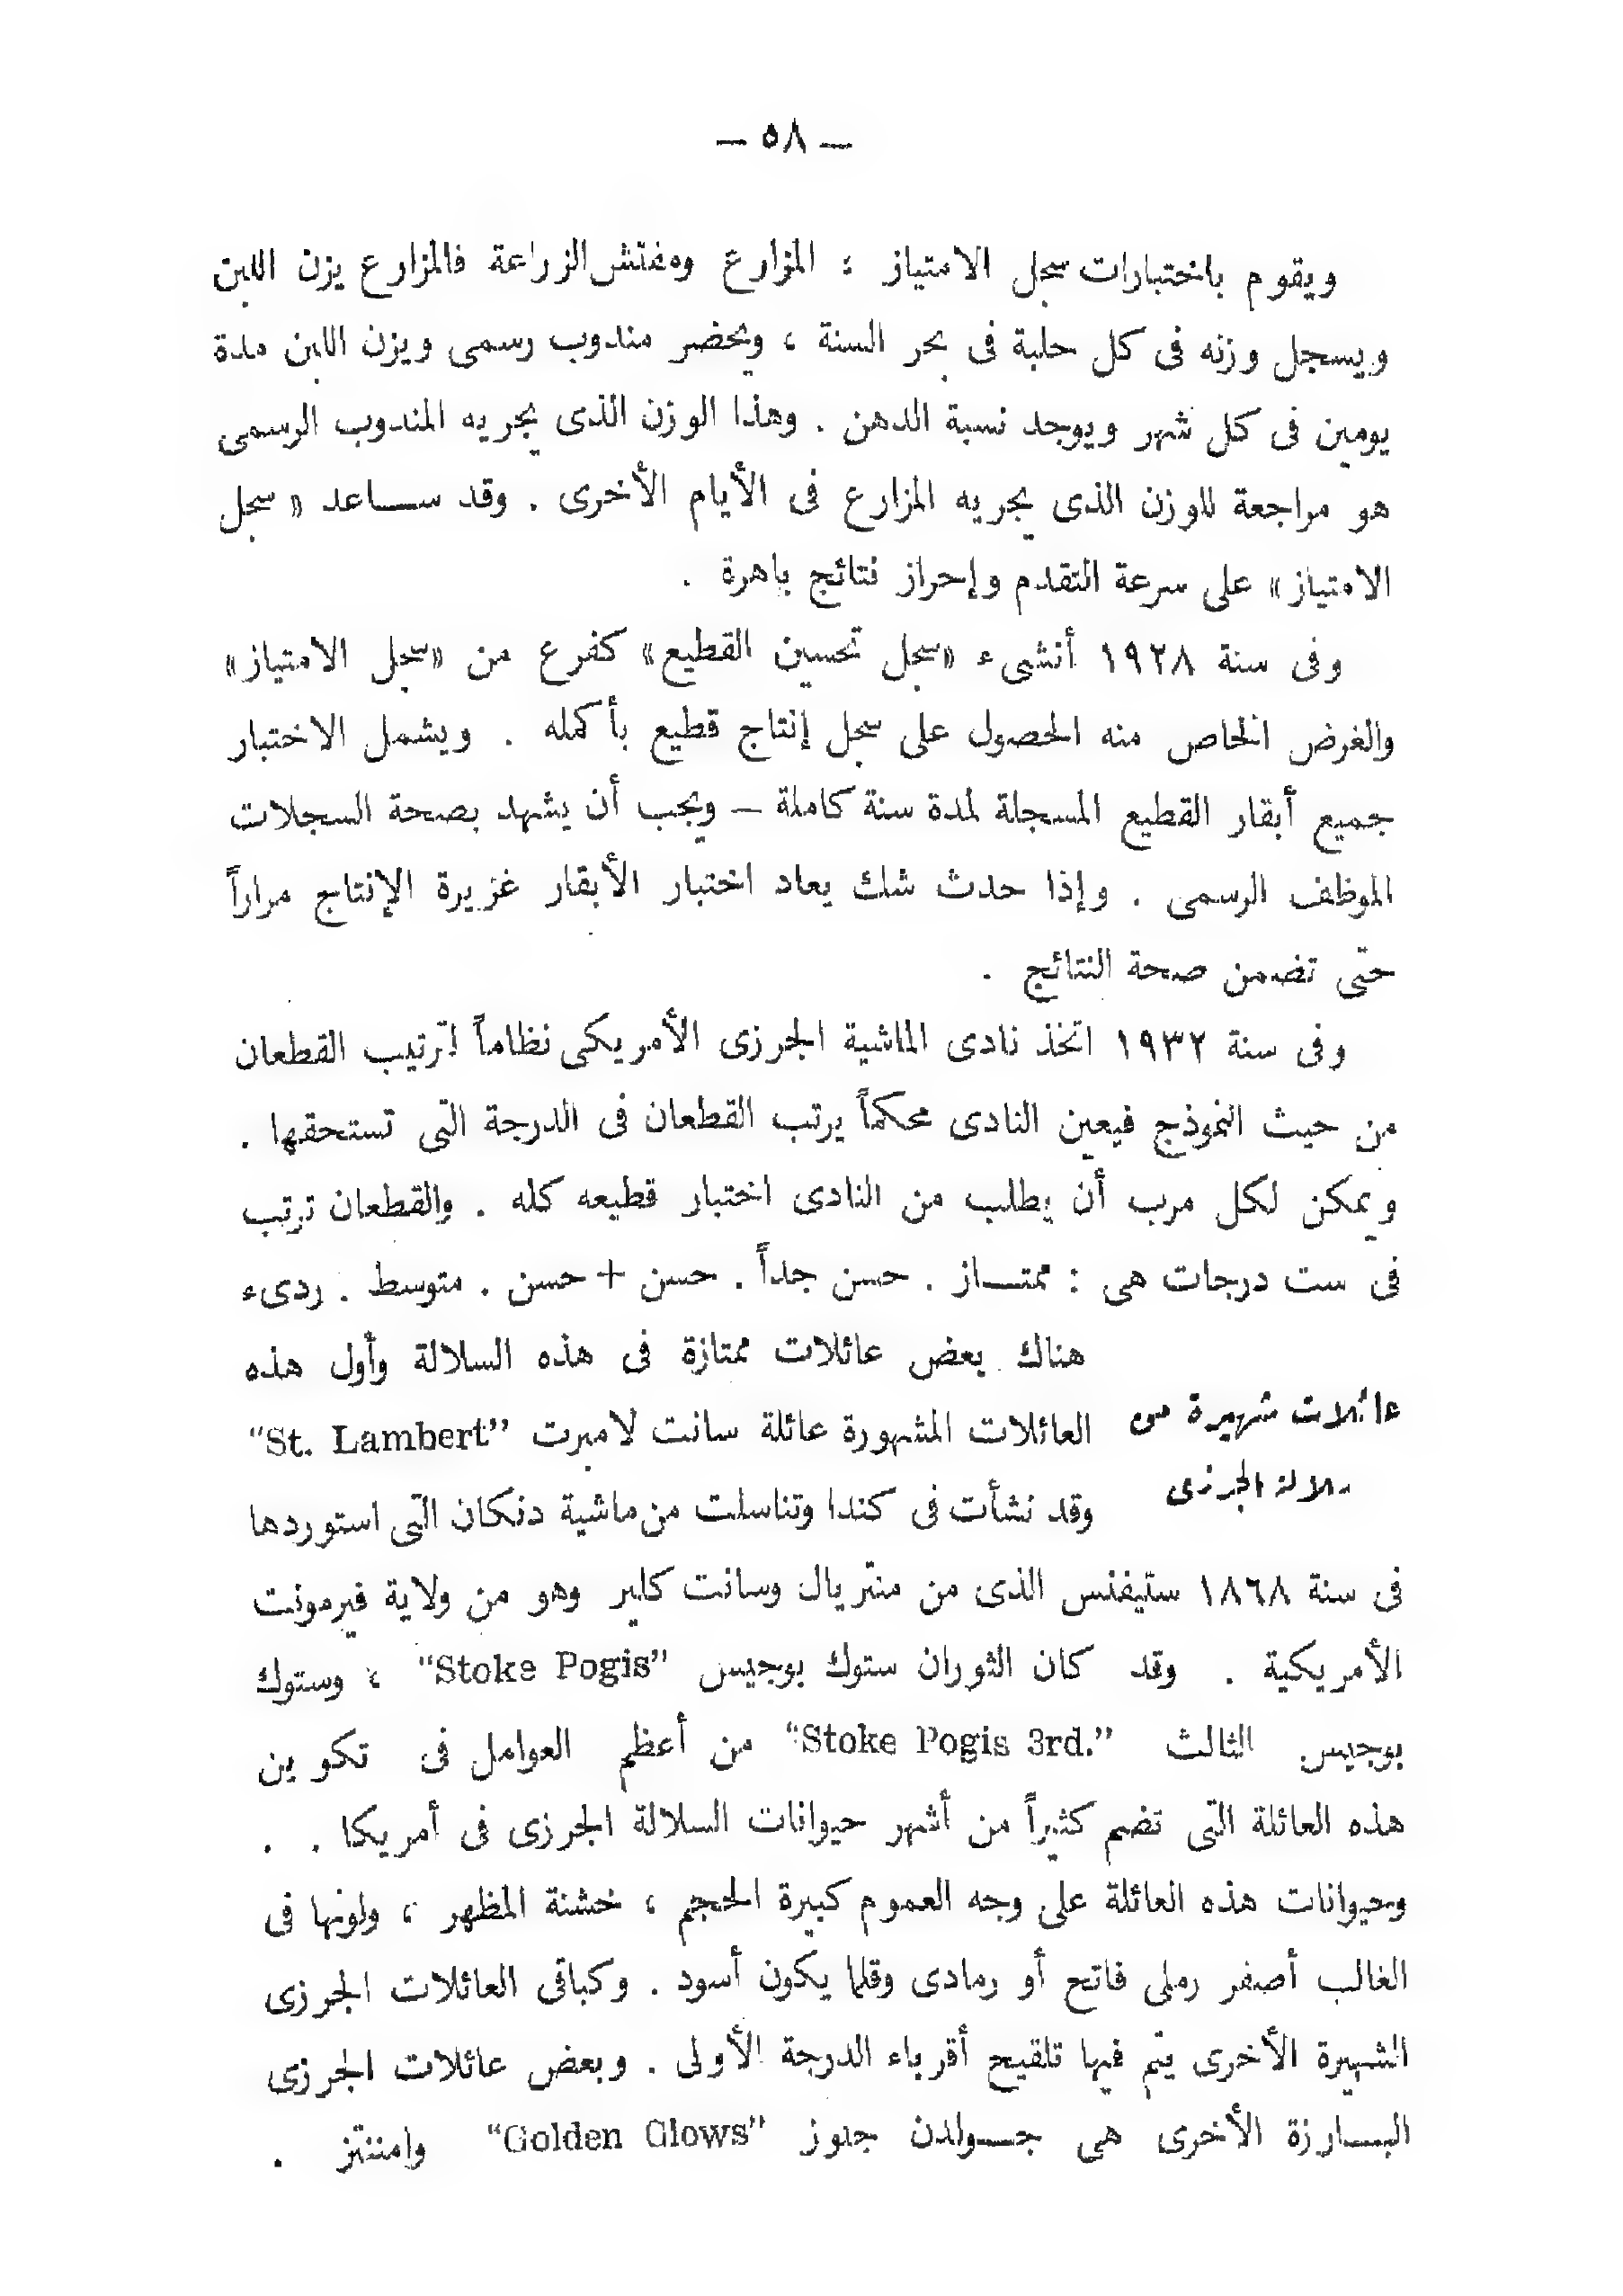 — ٥٨ —
ويقوم باختبارات سجل الامتياز : المزارع ومفتش الزراعة فالمزارع يزن اللبن
ويسجل وزنه فى كل حلبة فى بحر السنة ، ويحضر مندوب رسمى ويزن اللبن مدة
يومين فى كل شهر ويوجد نسبة الدهن . وهذا الوزن الذى يجريه المندوب الرسمى
هو مراجعة للوزن الذى يجريه المزارع فى الأيام الأخرى . وقد ساعد « سجل
الامتياز » على سرعة التقدم وإحراز نتائج باهرة .
وفى سنة ١٩٢٨ أنشىء «سجل تحسين القطيع» كفرع من «سجل الامتياز»
والغرض الخاص منه الحصول على سجل إنتاج قطيع بأكمله . ويشمل الاختبار
جميع أبقار القطيع المسجلة لمدة سنة كاملة — ويجب أن يشهد بصحة السجلات
الموظف الرسمى . وإذا حدث شك يعاد اختبار الأبقار غزيرة الإنتاج مراراً
حتى تضمن صحة النتائج .
وفى سنة ١٩٣٢ اتخذ نادى الماشية الجرزى الأمريكى نظاماً لترتيب القطعان
من حيث النموذج فيعين النادى محكماً يرتب القطعان فى الدرجة التى تستحقها .
ويمكن لكل مرب أن يطلب من النادى اختبار قطيعه كله . والقطعان ترتب
فى ست درجات هى : ممتـاز . حسن جداً . حسن + حسن . متوسط . ردىء
عائلات شهيرة من
سلالة الجرزى
هناك بعض عائلات ممتازة فى هذه السلالة وأول هذه
العائلات المشهورة عائلة سانت لامبرت "St. Lambert"
وقد نشأت فى كندا وتناسلت من ماشية دنكان التى استوردها
فى سنة ١٨٦٨ ستيفنس الذى من منتريال وسانت كلير وهو من ولاية فيرمونت
الأمريكية . وقد كان الثوران ستوك بوجيس "Stoke Pogis" ، وستوك
بوجيس الثالث "Stoke Pogis 3rd." من أعظم العوامل فى تكوين
هذه العائلة التى تضم كثيراً من أشهر حيوانات السلالة الجرزى فى أمريكا . .
وحيوانات هذه العائلة على وجه العموم كبيرة الحجم ، خشنة المظهر ، ولونها فى
الغالب أصفر رملى فاتح أو رمادى وقلما يكون أسود . وكباقى العائلات الجرزى
الشهيرة الأخرى يتم فيها تلقيح أقرباء الدرجة الأولى . وبعض عائلات الجرزى
البـارزة الأخرى هى جـولدن جلوز "Golden Glows" وامنتتز .